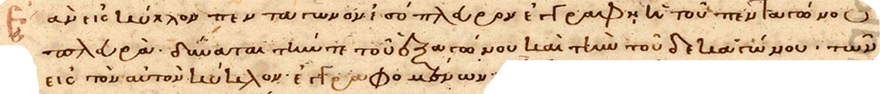 Ἐὰν εἰς κύκλον πεντάγωνον ἰσόπλευρον ἐγγραφῆ ἡ τοῦ πενταγώνου
πλευρὰ· δύναται τήν τε τοῦ ἑξαγώνου καὶ τὴν τοῦ δεκαγώνου· τῶν
εἰς τὸν αὐτὸν κύκλον ἐγγραφομένων